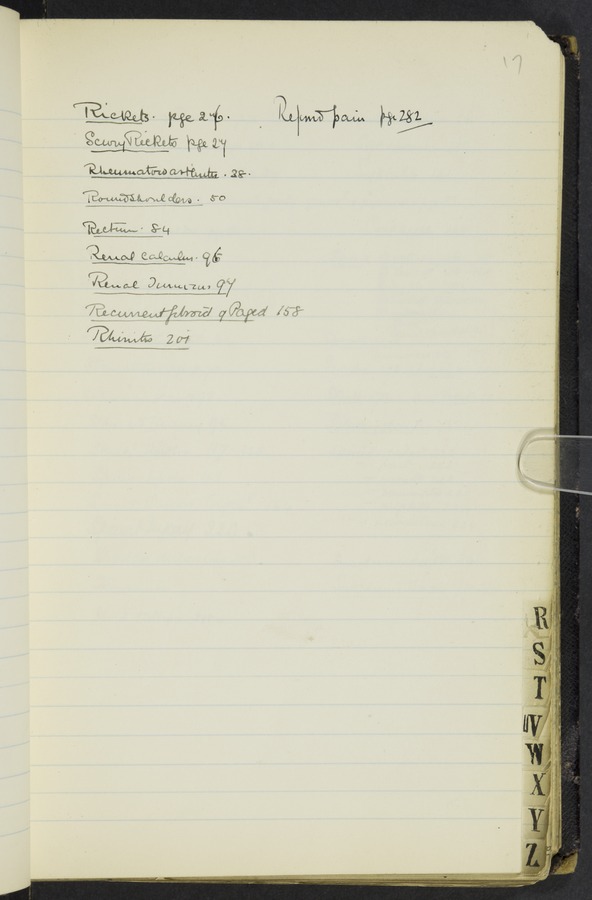 17
Rickets. pge 26. Referred pain pge 282
Scurvy Rickets pge 27
Rheumatoid arthritis. 38.
Roundshoulders. 50
Rectum. 84
Renal calculus. 96
Renal 97
Recurrent fibroid of Paget 158
Rhinitis 201
R
S
T
UV
W
X
Y
Z